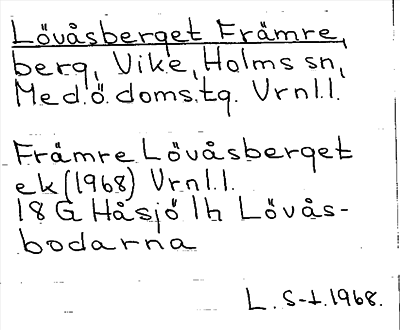 Lövåsberget Främre,
berg, Vike, Holms sn,
Med.ö. doms.tg. Vrnl.l.
Främre Lövåsberget
ek (1968) Vrnl.l.
18 G Håsjö 1h Lövås-
bodarna
L. S-t. 1968.